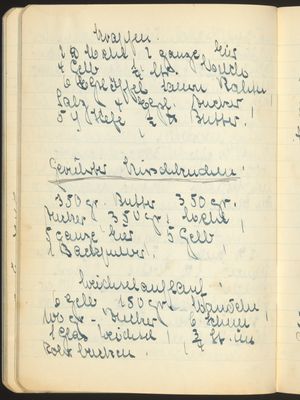 Krapfen:
1 ℔ Mehl 2 ganze Eier
4 Gelb Milch
6 Esslöffel sauren Rahm
Salz 4 Zucker
5 Hefe Butter!
Gerührter Kirschkuchen!
350 gr. Butter 350 gr.
Zucker 350 gr. Mehl
5 ganze Eier 5 Gelb!
1 Backpulver!
Weichselauflauf
6 Gelb 180 gr. Mandeln!
100 gr - Zucker 6 Schnee
1 Glas Weichsel 3/4 St. im
Rohr backen.